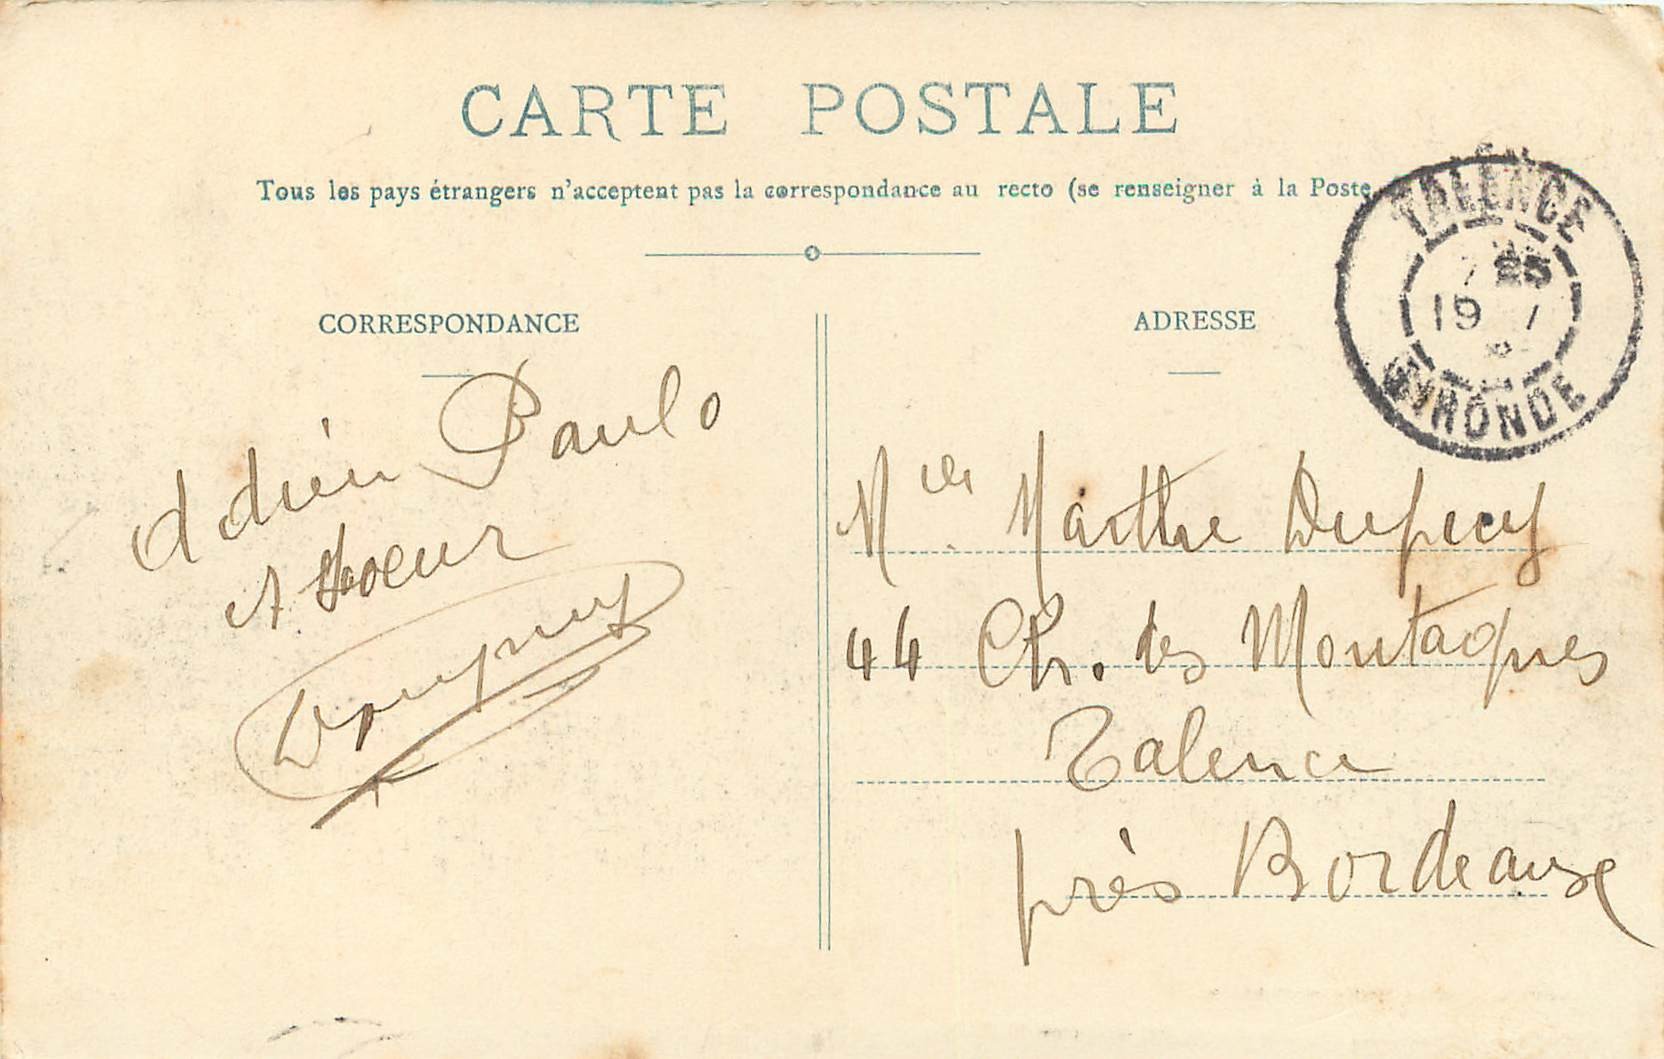 CARTE POSTALE
Tous les pays étrangers n'acceptent pas la correspondance au recto (se renseigner à la Poste
TALENCE
7 25
19 7
GIRONDE
CORRESPONDANCE
Adrien Paulo
et soeur
Dupuy
ADRESSE
Mlle Marthe Dupuy
44 Ch. des Montagnes
Talence
près Bordeaux